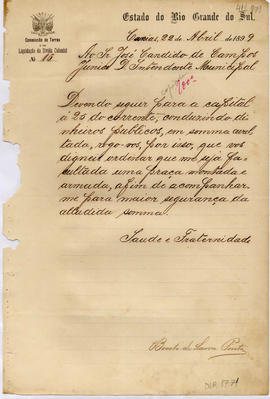 Estado do Rio Grande do Sul.
Commissão de Terras
e
Liquidação da Divida Colonial
Nº 15
Caxias, 22 de Abril de 1899
Ao Sr. José Candido de Campos
Junior D. Intendente Municipal
Devendo seguir para a capital
a 25 do corrente, conduzindo di-
nheiros publicos, em somma avul-
tada, rogo-vos, por isso, que vos
digneis ordenar que me seja fa-
cultada uma praça montada e
armada, afim de acompanhar-
me para maior segurança da
alludida somma.
Saude e Fraternidade